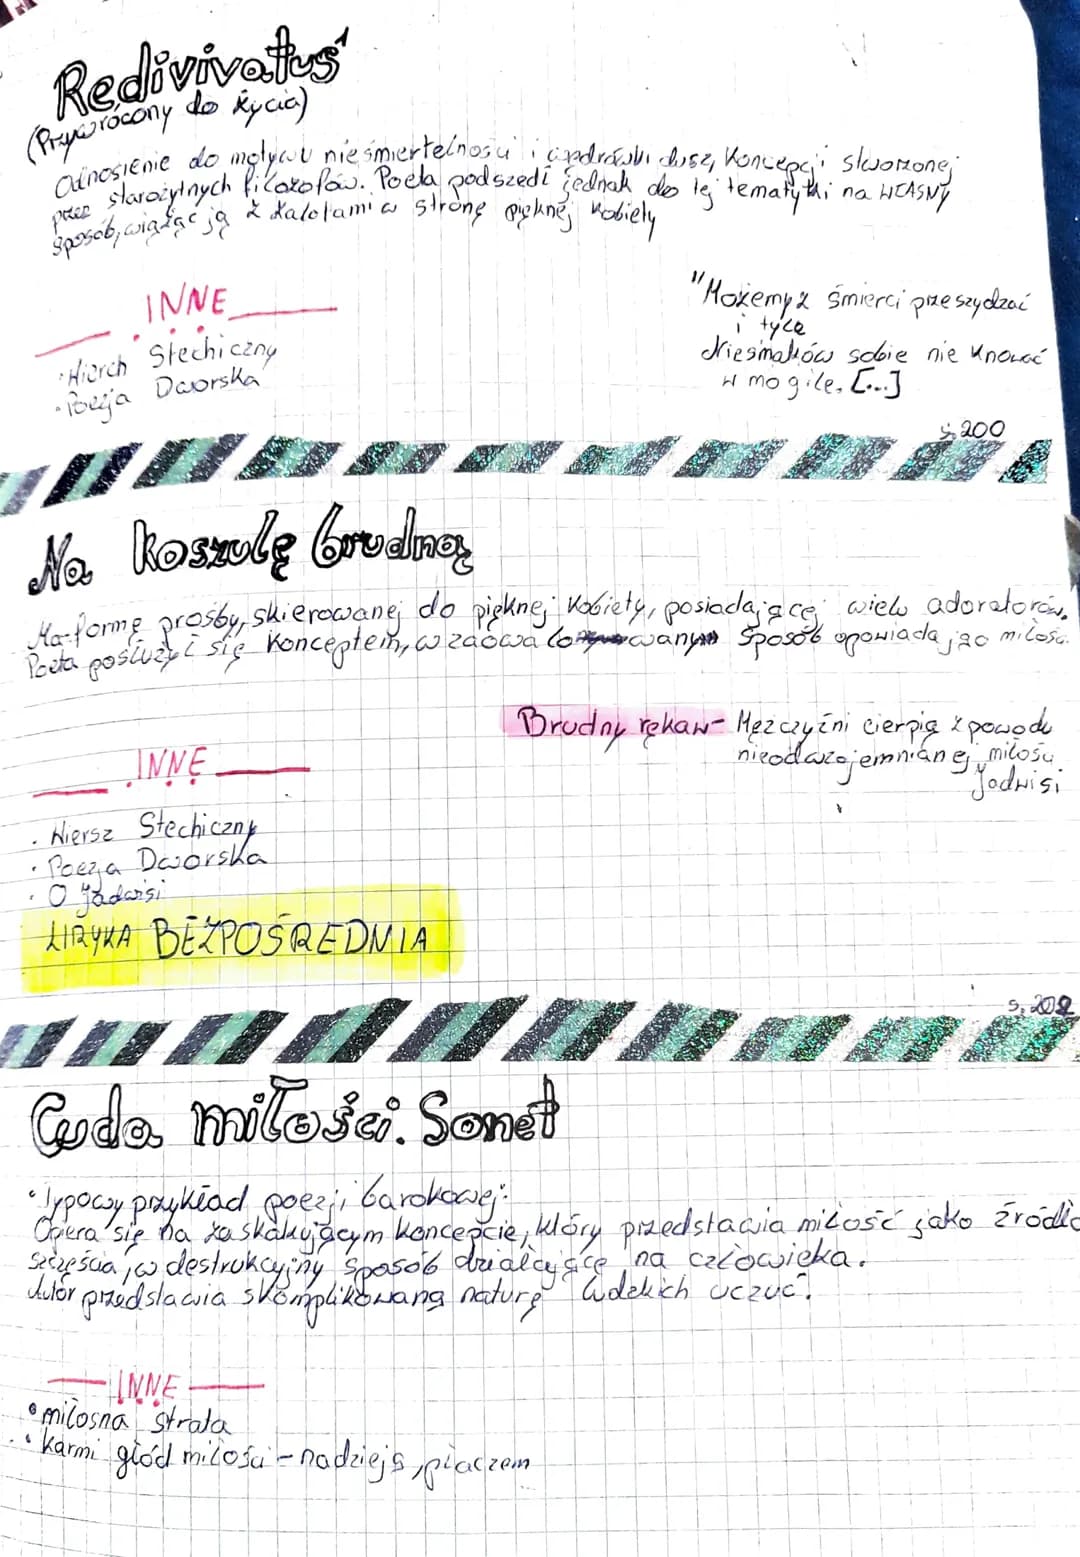 Redivivatus¹
(Przywrócony do życia)
Odnosienie do motywu nieśmiertelności i wędrówki duszy, koncepcji stworzonej
przez starożytnych filozofów. Poeta podszedł jednak do tej tematyki na WŁASNY
sposób, wiążąc ją z zalotami w stronę pięknej kobiety
INNE
"Możemy z śmierci przeszydzać
i tyle
Niesmaków sobie nie knować
w mogile. [...]
· Wierch Stechiczny
· Poezja Dworska
s. 200
Na koszulę brudną
Ma formę prośby, skierowanej do pięknej kobiety, posiadającej wielu adoratorów.
Poeta posłużył się konceptem, w zaowalo wany sposób opowiada jao miłości.
Brudny rękaw - Mężczyźni cierpią z powodu
nieodwzojemnianej miłości
Jadwisi
INNE
· Wiersz Stechiczny
· Poezja Dworska
· O Jadwisi
LIRYKA BEZPOŚREDNIA
s. 202
Cuda miłości. Sonet
• Typowy przykład poezji barokowej:
Opiera się na zaskakującym koncepcie, który przedstawia miłość jako źródło
szczęścia, w destrukcyjny sposób działcyjące na człowieka.
Autor przedstawia skomplikowaną naturę ludzkich uczuć.
INNE
• miłosna strata
• karmi głód miłości - nadzieją, płaczem